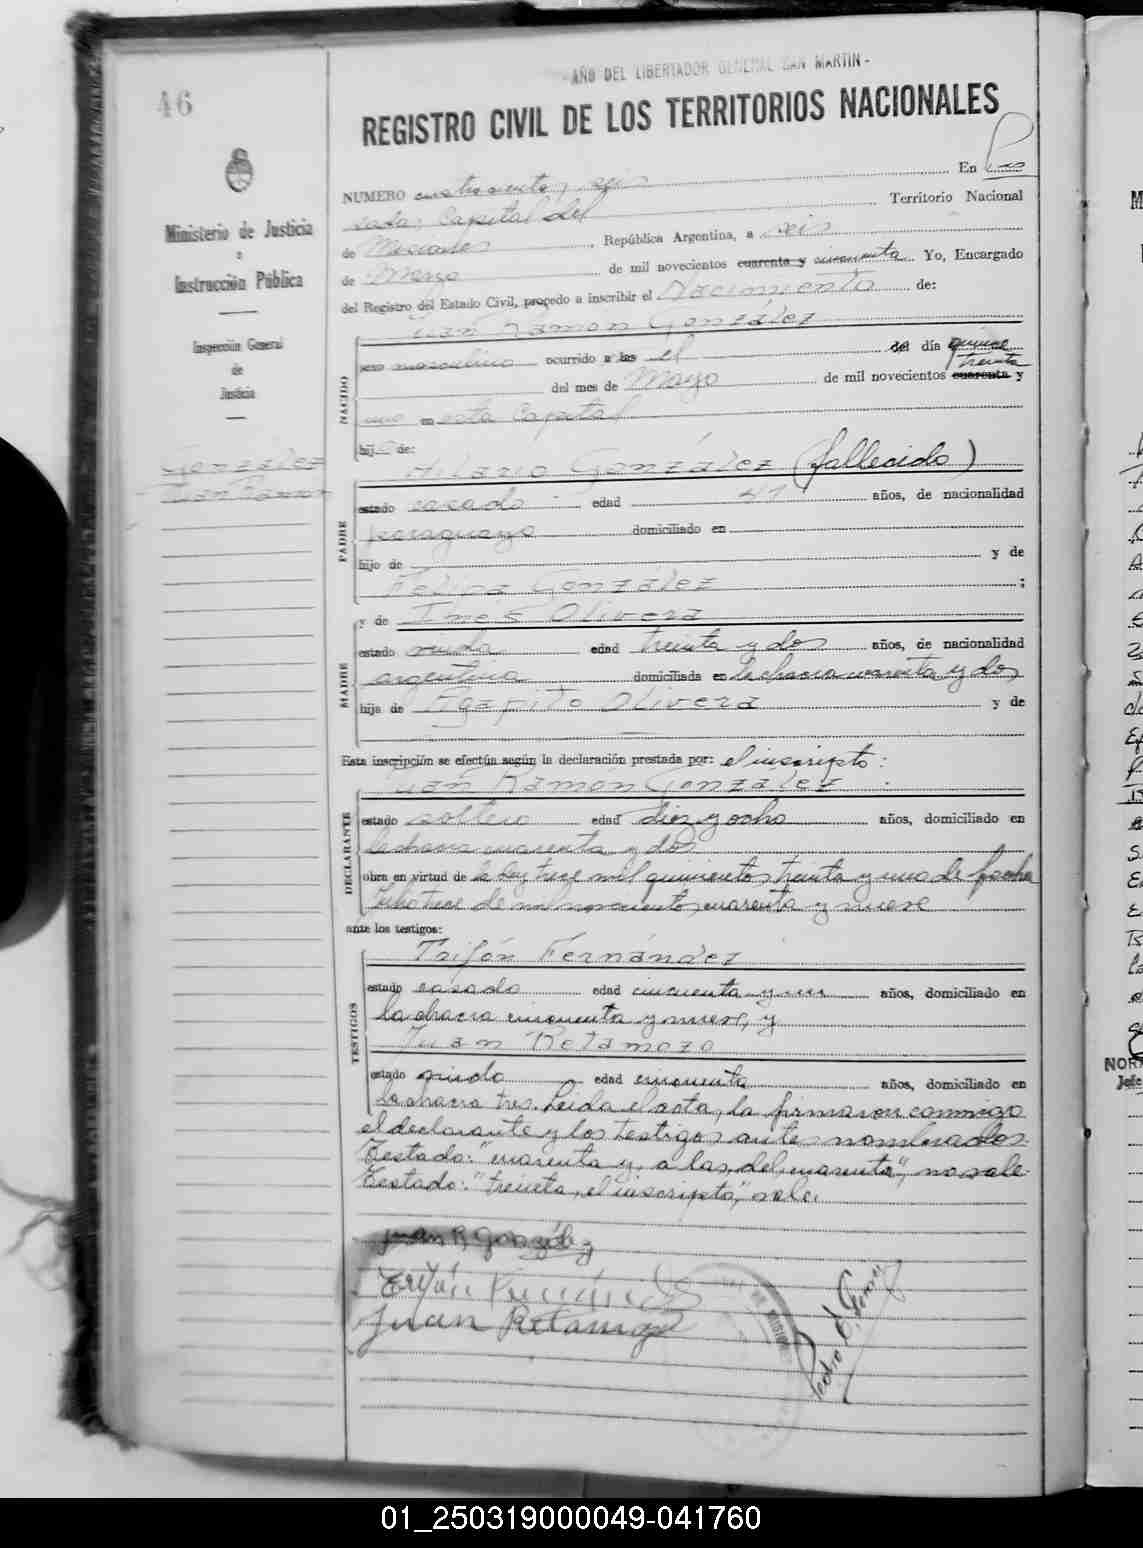 - AÑO DEL LIBERTADOR GENERAL SAN MARTIN -
46
REGISTRO CIVIL DE LOS TERRITORIOS NACIONALES
Ministerio de Justicia
e
Instrucción Pública
Inspección General
de
Justicia
González
Juan Ramon
NUMERO cuatrocientos seis En Po
sadas, Capital del Territorio Nacional
de Misiones, República Argentina, a seis
de Marzo de mil novecientos cuarenta y cincuenta Yo, Encargado
del Registro del Estado Civil, procedo a inscribir el Nacimiento de:
Juan Ramón González
NACIDO
sexo masculino ocurrido a las el del día quince
treinta
del mes de Mayo de mil novecientos cuarenta y
uno en esta Capital
hijo de:
Hilario González (fallecido)
PADRE
estado casado edad 47 años, de nacionalidad
paraguayo domiciliado en
hijo de y de
Felipa González ;
y de Inés Olivera
MADRE
estado viuda edad treinta y dos años, de nacionalidad
argentina domiciliada en la chacra cuarenta y dos
hija de Agapito Olivera y de
Esta inscripción se efectúa según la declaración prestada por: el inscripto:
Juan Ramón González
DECLARANTE
estado soltero edad diez y ocho años, domiciliado en
la chacra cuarenta y dos
obra en virtud de la Ley trece mil quinientos treinta y uno de fecha
Julio trece de mil novecientos cuarenta y nueve
ante los testigos:
Trifón Fernández
TESTIGOS
estado casado edad cincuenta y un años, domiciliado en
la chacra cincuenta y nueve, y
Juan Retamozo
estado viudo edad cincuenta años, domiciliado en
la chacra tres. Leida el acta, la firmaron conmigo
el declarante y los testigos antes nombrados.
Testado: "cuarenta y, a las, del, cuarenta", no vale
Testado: "treinta, el inscripto", vale.
Juan R González
Trifón Fernández
Juan Retamozo
01_250319000049-041760